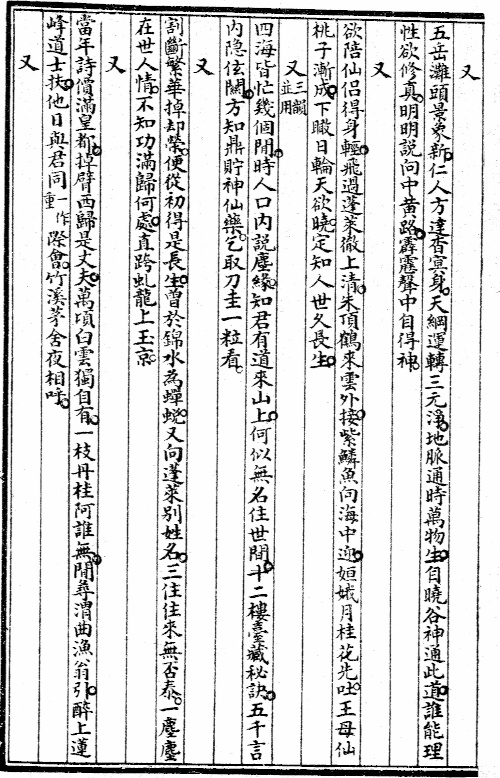 又
五岳灘頭景象新仁人方達杳冥身天綱運轉三元淨地脈通時萬物生自曉谷神通此道誰能理
性欲修真明明説向中黄路霹靂聲中自得神
又
欲陪仙侣得身輕飛過蓬萊徹上清朱頂鶴來雲外接紫鱗魚向海中迎姮娥月桂花先吐王母仙
桃子漸成下瞰日輪天欲曉定知人世久長生
又三韻並用
四海皆忙幾個閒時人口内説塵緣知君有道來山上何似無名住世間十二樓臺藏秘訣五千言
内隐𤣥關方知鼎貯神仙藥乞取刀圭一粒看
又
割斷繁華掉却榮便從初得是長生曽於錦水為蟬蜕又向蓬萊别姓名三住住來無否泰一塵塵
在世人情不知功滿歸何處直跨虬龍上玉京
又
當年詩價滿皇都掉臂西歸是丈夫萬頃白雲獨自有一枝丹桂阿誰無閒尋渭曲漁翁引醉上蓮
峰道士扶他日與君同一作重際㑹竹溪茅舍夜相呼
又